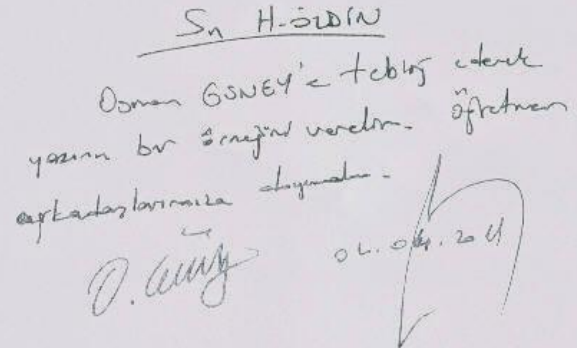 Sn H. ÖZDİN
Osman GÜNEY'e tebliğ ederek
yazının bir örneğini verelim. Öğretmen
arkadaşlarımıza duyuralım.
O. Güney
04.04.2011